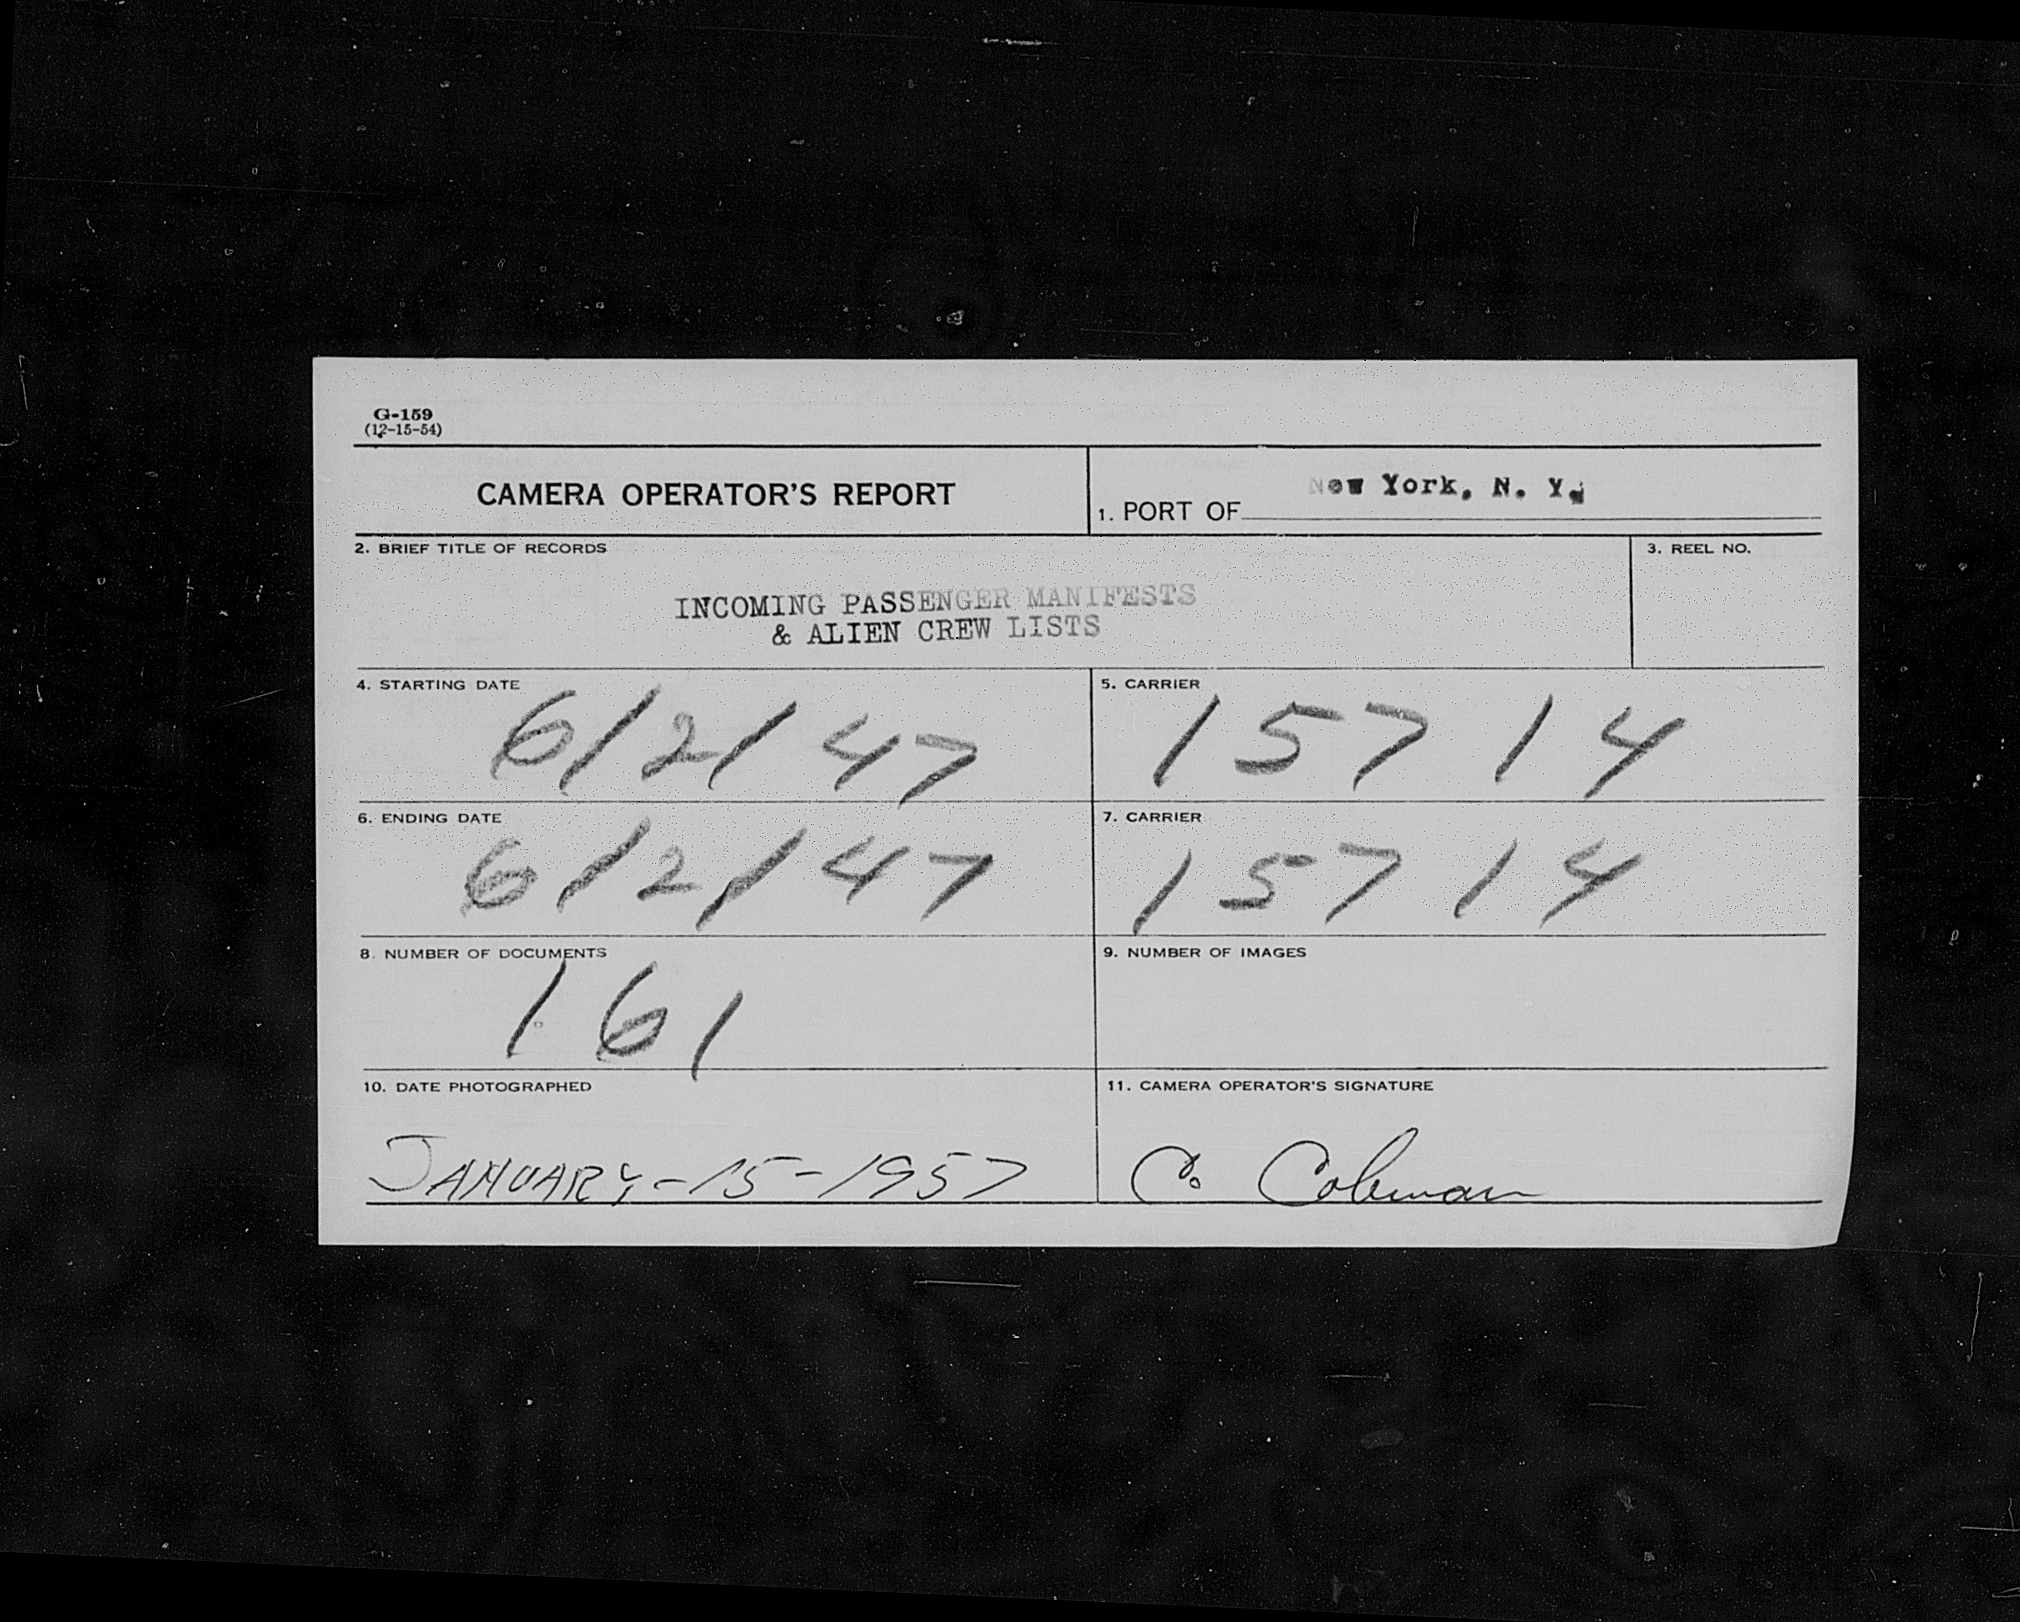 G-159
(12-15-54)
CAMERA OPERATOR'S REPORT
1. PORT OF New York, N. Y.
2. BRIEF TITLE OF RECORDS
3. REEL NO.
INCOMING PASSENGER MANIFESTS
& ALIEN CREW LISTS
4. STARTING DATE
6/2/47
5. CARRIER
15714
6. ENDING DATE
6/2/47
7. CARRIER
15714
8. NUMBER OF DOCUMENTS
161
9. NUMBER OF IMAGES
10. DATE PHOTOGRAPHED
JANUARY-15-1957
11. CAMERA OPERATOR'S SIGNATURE
C. Coleman